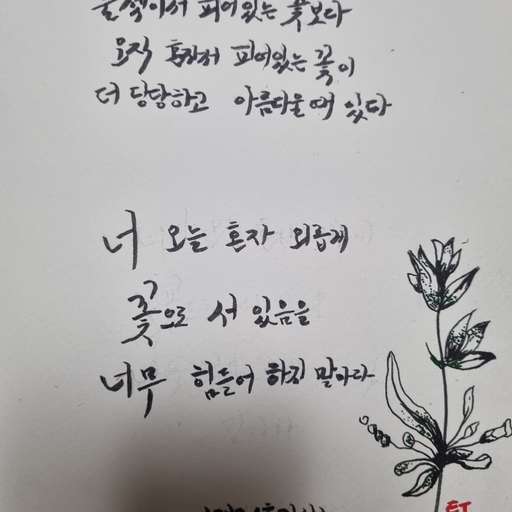 섞여서 피어있는 꽃보다
오직 혼자서 피어있는 꽃이
더 당당하고 아름다울 때 있다
너 오늘 혼자 외롭게
꽃으로 서 있음을
너무 힘들어 하지 말아라
ET